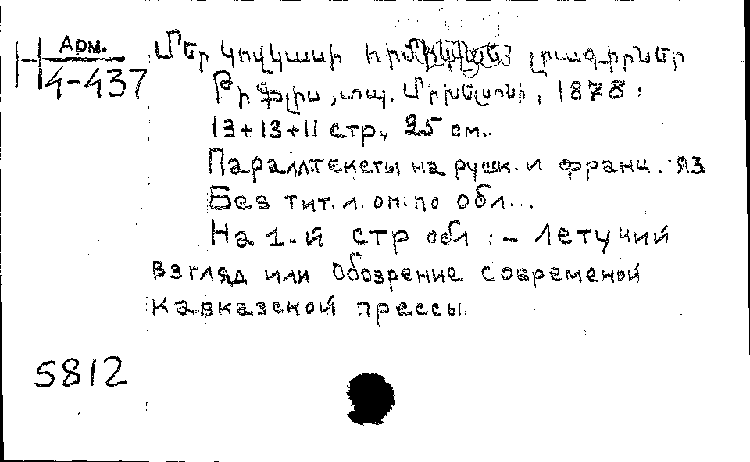 Арм.
4-437
Մեր Կովկասի լրագիրներ
Թիֆլիս, տպ. 1878:
13+13+11 стр., 25 см.
Паралл тексты на русск. и франц. яз
Без тит. л. оп. по обл...
На 1-й стр обл :- Летучий
взгляд или Обозрение современой
Кавказской прессы
5812